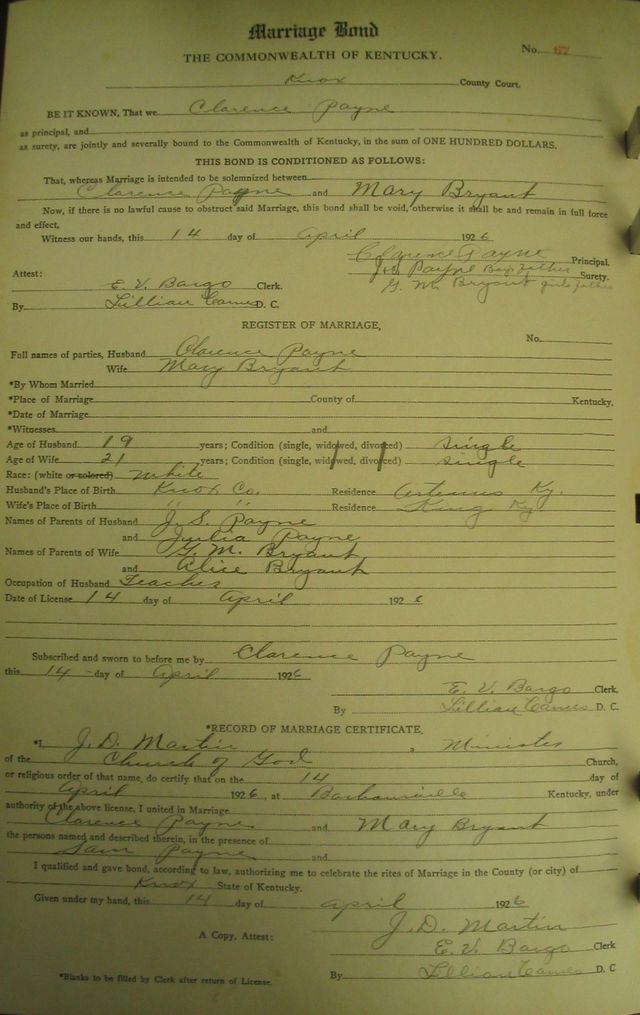 Marriage Bond
THE COMMONWEALTH OF KENTUCKY.
No. 67
Knox County Court.
BE IT KNOWN, That we Clarence Payne
as principal, and
as surety, are jointly and severally bound to the Commonwealth of Kentucky, in the sum of ONE HUNDRED DOLLARS.
THIS BOND IS CONDITIONED AS FOLLOWS:
That, whereas Marriage is intended to be solemnized between
Clarence Payne and Mary Bryant
Now, if there is no lawful cause to obstruct said Marriage, this bond shall be void, otherwise it shall be and remain in full force
and effect,
Witness our hands, this 14 day of April 1926
Clarence Payne Principal.
J.S. Payne Boys father Surety.
Attest:
G. M. Bryant girls father
E. V. Bargo Clerk.
By Lillian Eames D. C.
REGISTER OF MARRIAGE,
No.
Full names of parties, Husband Clarence Payne
Wife Mary Bryant
*By Whom Married
*Place of Marriage County of Kentucky.
*Date of Marriage
*Witnesses and
Age of Husband 19 years; Condition (single, widowed, divorced) single
Age of Wife 21 years; Condition (single, widowed, divorced) single
Race: (white or colored) White
Husband's Place of Birth Knox Co. Residence Artemus Ky.
Wife's Place of Birth " " Residence King Ky
Names of Parents of Husband J. S. Payne
and Julia Payne
Names of Parents of Wife G. M. Bryant
and Alice Bryant
Occupation of Husband Teacher
Date of License 14 day of April 1926
Subscribed and sworn to before me by Clarence Payne
this 14 day of April 1926
E. V. Bargo Clerk.
By Lillian Eames D. C.
*RECORD OF MARRIAGE CERTIFICATE,
*I, J. D. Martin, Minister
of the Church of God Church,
or religious order of that name, do certify that on the 14 day of
April 1926, at Barbourville Kentucky, under
authority of the above license, I united in Marriage
Clarence Payne and Mary Bryant
the persons named and described therein, in the presence of
Sam Payne and
I qualified and gave bond, according to law, authorizing me to celebrate the rites of Marriage in the County (or city) of
Knox State of Kentucky.
Given under my hand, this 14 day of April 1926
J. D. Martin
A Copy, Attest: E. V. Bargo Clerk
*Blanks to be filled by Clerk after return of License. By Lillian Eames D. C